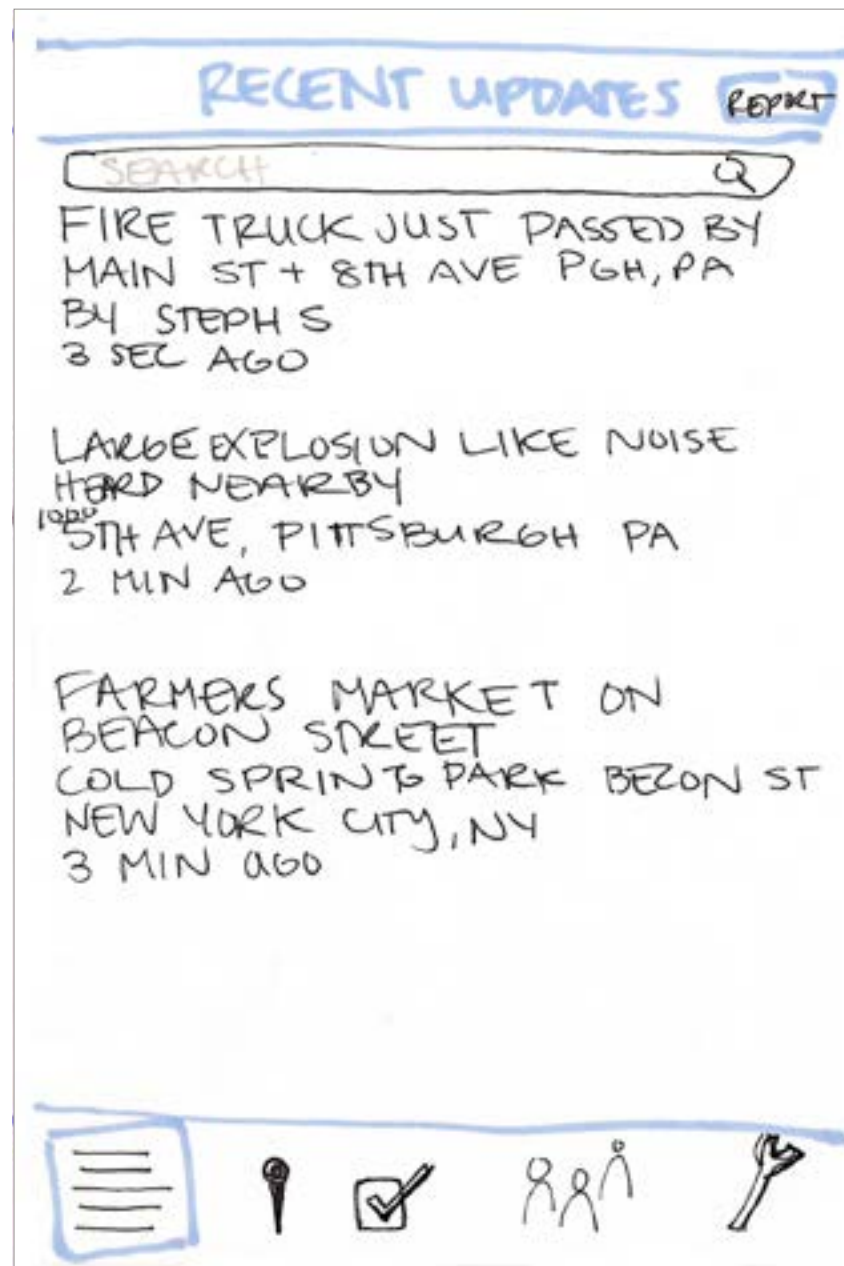 RECENT UPDATES REPORT
SEARCH
FIRE TRUCK JUST PASSED BY
MAIN ST + 8TH AVE PGH, PA
BY STEPH S
3 SEC AGO
LARGE EXPLOSION LIKE NOISE
HEARD NEARBY
1000 5TH AVE, PITTSBURGH PA
2 MIN AGO
FARMERS MARKET ON
BEACON STREET
COLD SPRING PARK BEZON ST
NEW YORK CITY, NY
3 MIN AGO